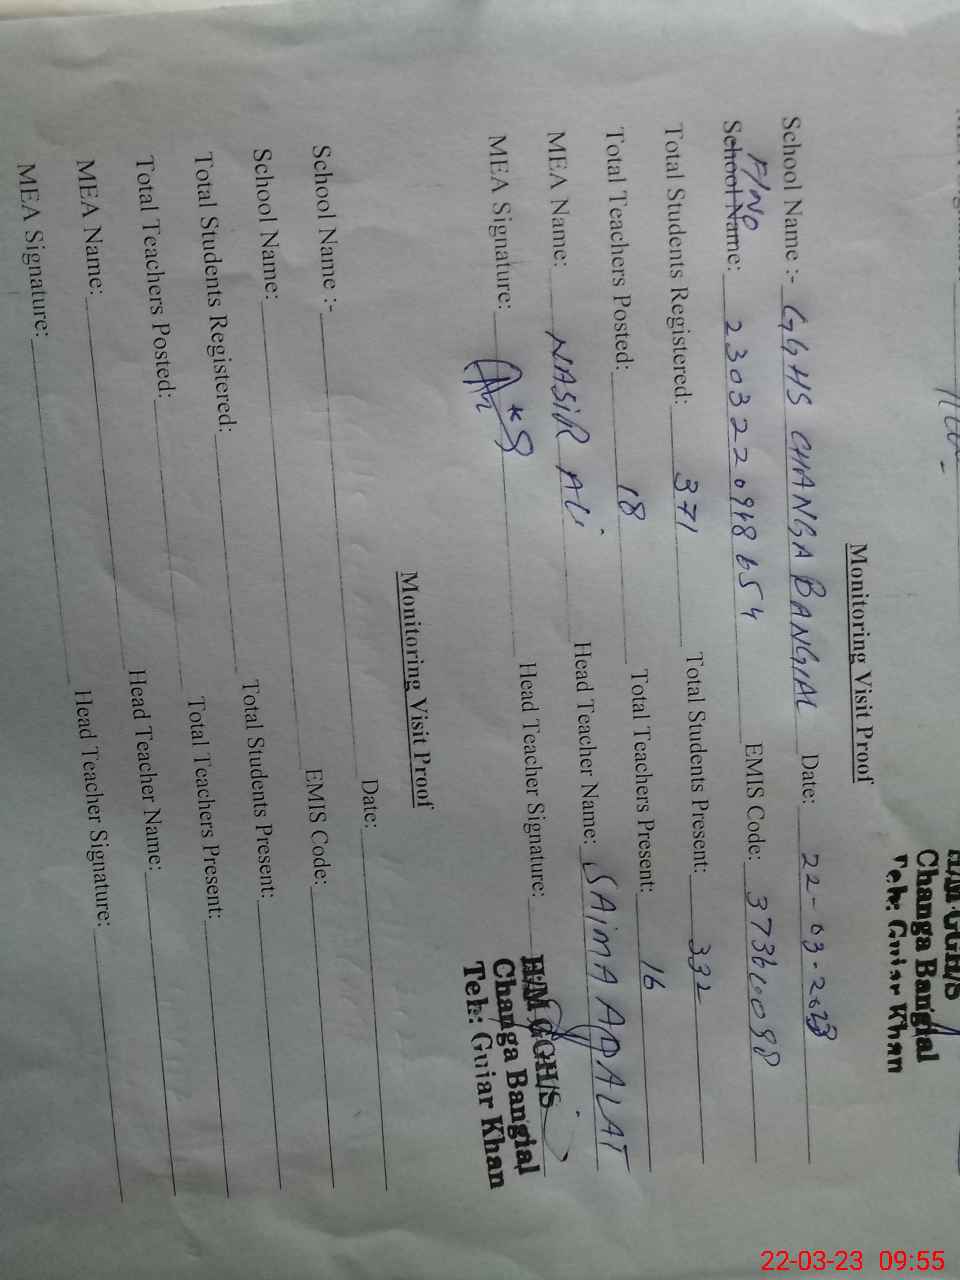 H/M GGH/S
Changa Bangial
Teh: Gujar Khan
Monitoring Visit Proof
School Name :- GGHS CHANGA BANGIAL Date: 22-03-2023
F/No
School Name: 2303220948654 EMIS Code: 373610098
Total Students Registered: 371 Total Students Present: 332
Total Teachers Posted: 18 Total Teachers Present: 16
MEA Name: NASIR ALi Head Teacher Name: SAIMA ADALAT
MEA Signature: Head Teacher Signature:
H/M GGH/S
Changa Bangial
Teh: Gujar Khan
Monitoring Visit Proof
School Name :- Date:
School Name: EMIS Code:
Total Students Registered: Total Students Present:
Total Teachers Posted: Total Teachers Present:
MEA Name: Head Teacher Name:
MEA Signature: Head Teacher Signature:
22-03-23 09:55